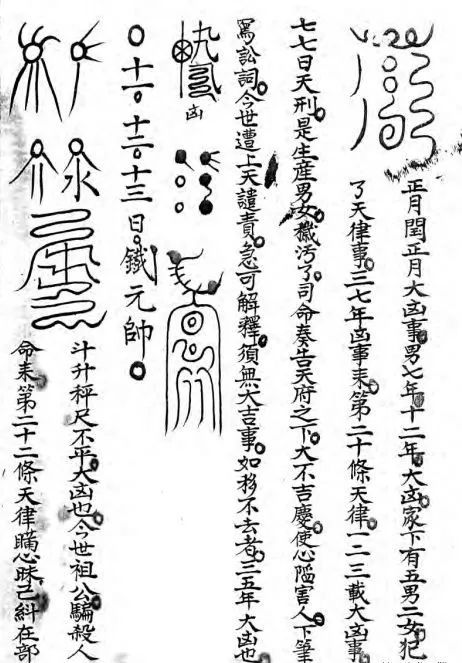 正月閏正月大凶事男七年十二年大凶家下有五男二女犯
了天律事三七年凶事耒第二十條天律一二三載大凶事
七七日天刑是生産男女穢汚了司命奏告天府之下大不吉慶使心陷害人下筆
寫訟詞今世遭上天譴責急可解釋須無大吉事如移不去者三五年大凶也
凶
十一十二十三日鐵元帥
斗升秤尺不平大凶也今世祖公騙殺人
命耒第二十二條天律瞞心昧己糾在部